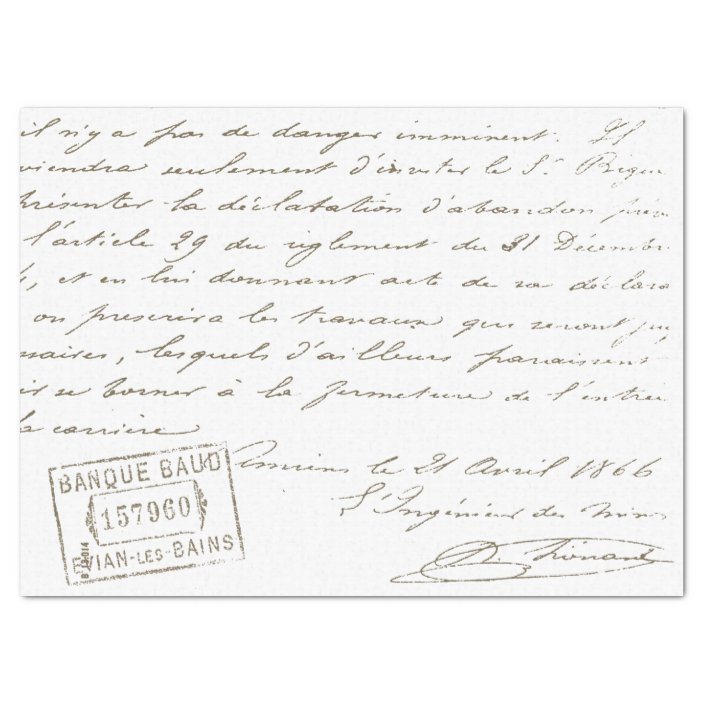 il n'y a pas de danger imminent. Il
viendra seulement d'inviter le Sr. Rique
présenter la déclaration d'abandon prév
l'article 29 du règlement du 31 Décembre
, et en lui donnant acte de sa déclara
on prescrira les travaux qui seront jug
ssaires, lesquels d'ailleurs paraissent
ir se borner à la fermeture de l'entrée
la carrière
Amiens le 21 Avril 1866
L'Ingénieur des Mines
BANQUE BAUD
157960
VIAN-LES-BAINS